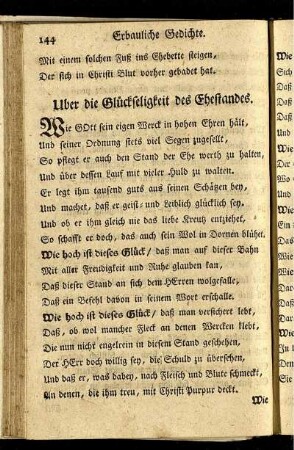 144 Erbauliche Gedichte.
Mit einem solchen Fuß ins Ehebette steigen,
Der sich in Christi Blut vorher gebadet hat.
Uber die Glückseligkeit des Ehestandes.
Wie GOtt sein eigen Werck in hohen Ehren hält,
Und seiner Ordnung stets viel Segen zugesellt,
So pflegt er auch den Stand der Ehe werth zu halten,
Und über dessen Lauf mit vieler Huld zu walten.
Er legt ihm tausend guts aus seinen Schätzen bey,
Und machet, daß er geist- und Leiblich glücklich sey.
Und ob er ihm gleich nie das liebe Kreutz entziehet,
So schafft er doch, daß auch sein Wol in Dornen blühet.
Wie hoch ist dieses Glück / daß man auf dieser Bahn
Mit aller Freudigkeit und Ruhe glauben kan,
Daß dieser Stand an sich dem HErren wolgefalle,
Daß ein Befehl davon in seinem Wort erschalle.
Wie hoch ist dieses Glück / daß man versichert lebt,
Daß, ob wol mancher Fleck an denen Wercken klebt,
Die nun nicht engelrein in diesem Stand geschehen,
Der HErr doch willig sey, die Schuld zu übersehen,
Und daß er, was dabey, nach Fleisch und Blute schmeckt,
An denen, die ihm treu, mit Christi Purpur deckt.
Wie